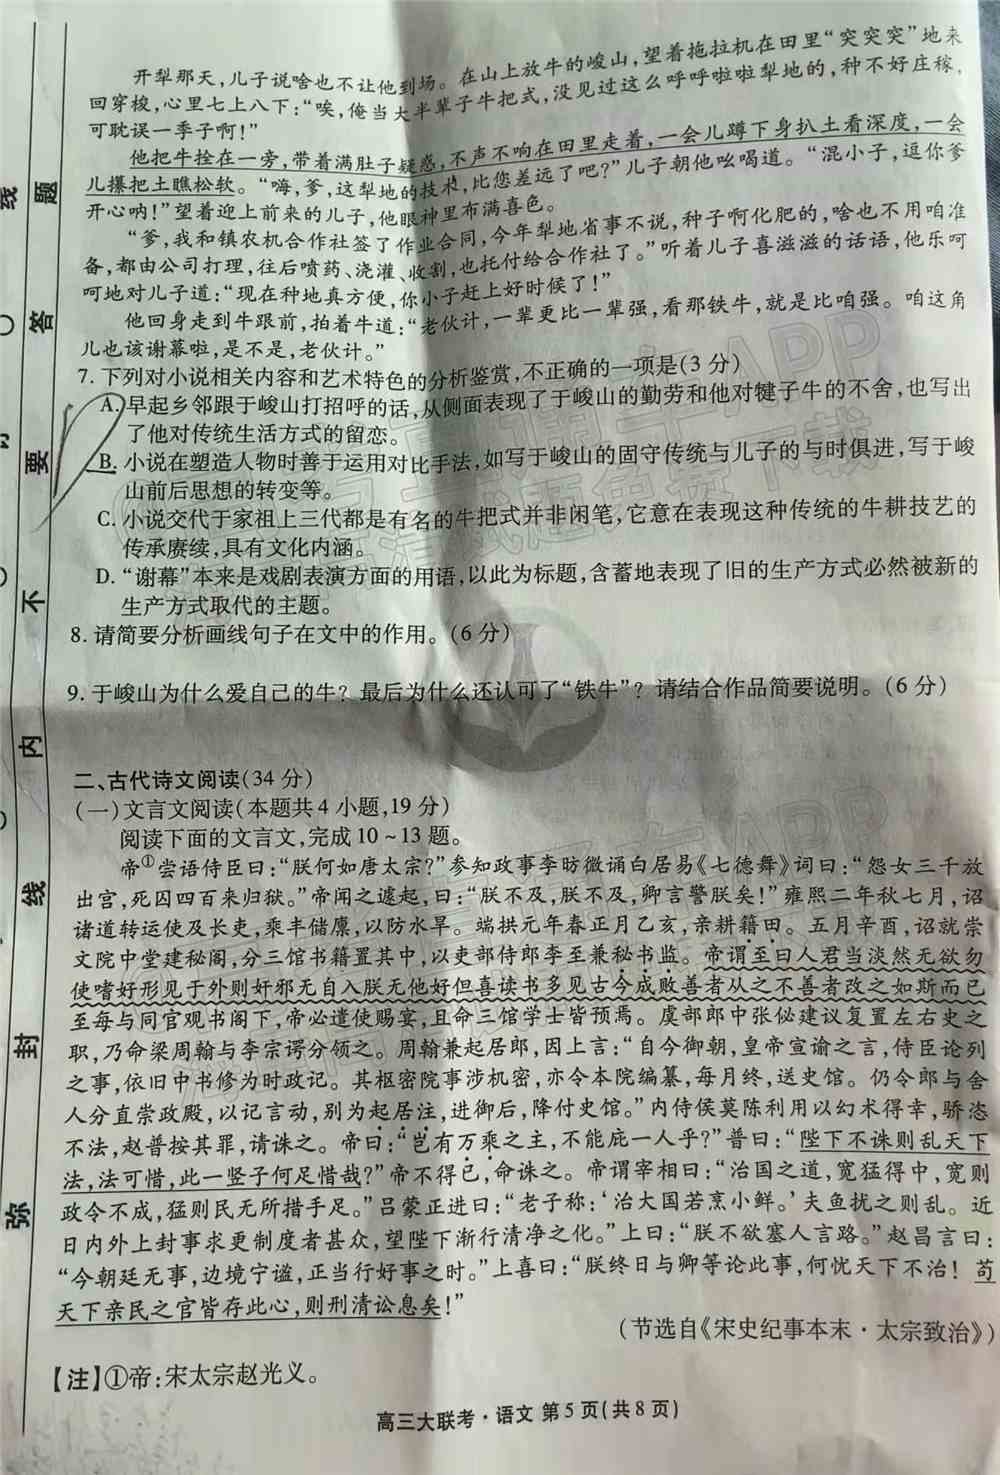 开犁那天,儿子说啥也不让他到场。在山上放牛的峻山,望着拖拉机在田里“突突突”地来
回穿梭,心里七上八下:“唉,俺当大半辈子牛把式,没见过这么呼呼啦啦犁地的,种不好庄稼,
可耽误一季子啊!”
他把牛拴在一旁,带着满肚子疑惑,不声不响在田里走着,一会儿蹲下身扒土看深度,一会
儿攥把土瞧松软。“嗨,爹,这犁地的技术,比您差远了吧?”儿子朝他吆喝道。“混小子,逗你爹
开心呐!”望着迎上前来的儿子,他眼神里布满喜色。
“爹,我和镇农机合作社签了作业合同,今年犁地省事不说,种子啊化肥的,啥也不用咱准
备,都由公司打理,往后喷药、浇灌、收割,也托付给合作社了。”听着儿子喜滋滋的话语,他乐呵
呵地对儿子道:“现在种地真方便,你小子赶上好时候了!”
他回身走到牛跟前,拍着牛道:“老伙计,一辈更比一辈强,看那铁牛,就是比咱强。咱这角
儿也该谢幕啦,是不是,老伙计。”
7. 下列对小说相关内容和艺术特色的分析鉴赏,不正确的一项是(3 分)
A. 早起乡邻跟于峻山打招呼的话,从侧面表现了于峻山的勤劳和他对犍子牛的不舍,也写出
了他对传统生活方式的留恋。
B. 小说在塑造人物时善于运用对比手法,如写于峻山的固守传统与儿子的与时俱进,写于峻
山前后思想的转变等。
C. 小说交代于家祖上三代都是有名的牛把式并非闲笔,它意在表现这种传统的牛耕技艺的
传承赓续,具有文化内涵。
D. “谢幕”本来是戏剧表演方面的用语,以此为标题,含蓄地表现了旧的生产方式必然被新的
生产方式取代的主题。
8. 请简要分析画线句子在文中的作用。(6 分)
9. 于峻山为什么爱自己的牛? 最后为什么还认可了“铁牛”? 请结合作品简要说明。(6 分)
二、古代诗文阅读(34 分)
(一)文言文阅读(本题共 4 小题,19 分)
阅读下面的文言文,完成 10~13 题。
帝①尝语侍臣曰:“朕何如唐太宗?”参知政事李昉微诵白居易《七德舞》词曰:“怨女三千放
出宫,死囚四百来归狱。”帝闻之遽起,曰:“朕不及,朕不及,卿言警朕矣!”雍熙二年秋七月,诏
诸道转运使及长吏,乘丰储廪,以防水旱。端拱元年春正月乙亥,亲耕籍田。五月辛酉,诏就崇
文院中堂建秘阁,分三馆书籍置其中,以吏部侍郎李至兼秘书监。帝谓至曰人君当淡然无欲勿
使嗜好形见于外则奸邪无自入朕无他好但喜读书多见古今成败善者从之不善者改之如斯而已
至每与同官观书阁下,帝必遣使赐宴,且命三馆学士皆预焉。虞部郎中张佖建议复置左右史之
职,乃命梁周翰与李宗谔分领之。周翰兼起居郎,因上言:“自今御朝,皇帝宣谕之言,侍臣论列
之事,依旧中书修为时政记。其枢密院事涉机密,亦令本院编纂,每月终,送史馆。仍令郎与舍
人分直崇政殿,以记言动,别为起居注,进御后,降付史馆。”内侍侯莫陈利用以幻术得幸,骄恣
不法,赵普按其罪,请诛之。帝曰:“岂有万乘之主,不能庇一人乎?”普曰:“陛下不诛则乱天下
法,法可惜,此一竖子何足惜哉?”帝不得已,命诛之。帝谓宰相曰:“治国之道,宽猛得中,宽则
政令不成,猛则民无所措手足。”吕蒙正进曰:“老子称:‘治大国若烹小鲜。’夫鱼扰之则乱。近
日内外上封事求更制度者甚众,望陛下渐行清净之化。”上曰:“朕不欲塞人言路。”赵昌言曰:
“今朝廷无事,边境宁谧,正当行好事之时。”上喜曰:“朕终日与卿等论此事,何忧天下不治! 苟
天下亲民之官皆存此心,则刑清讼息矣!”
(节选自《宋史纪事本末·太宗致治》)
【注】①帝:宋太宗赵光义。
高三大联考·语文 第 5 页(共 8 页)
题
答
要
不
内
线
封
弥
线